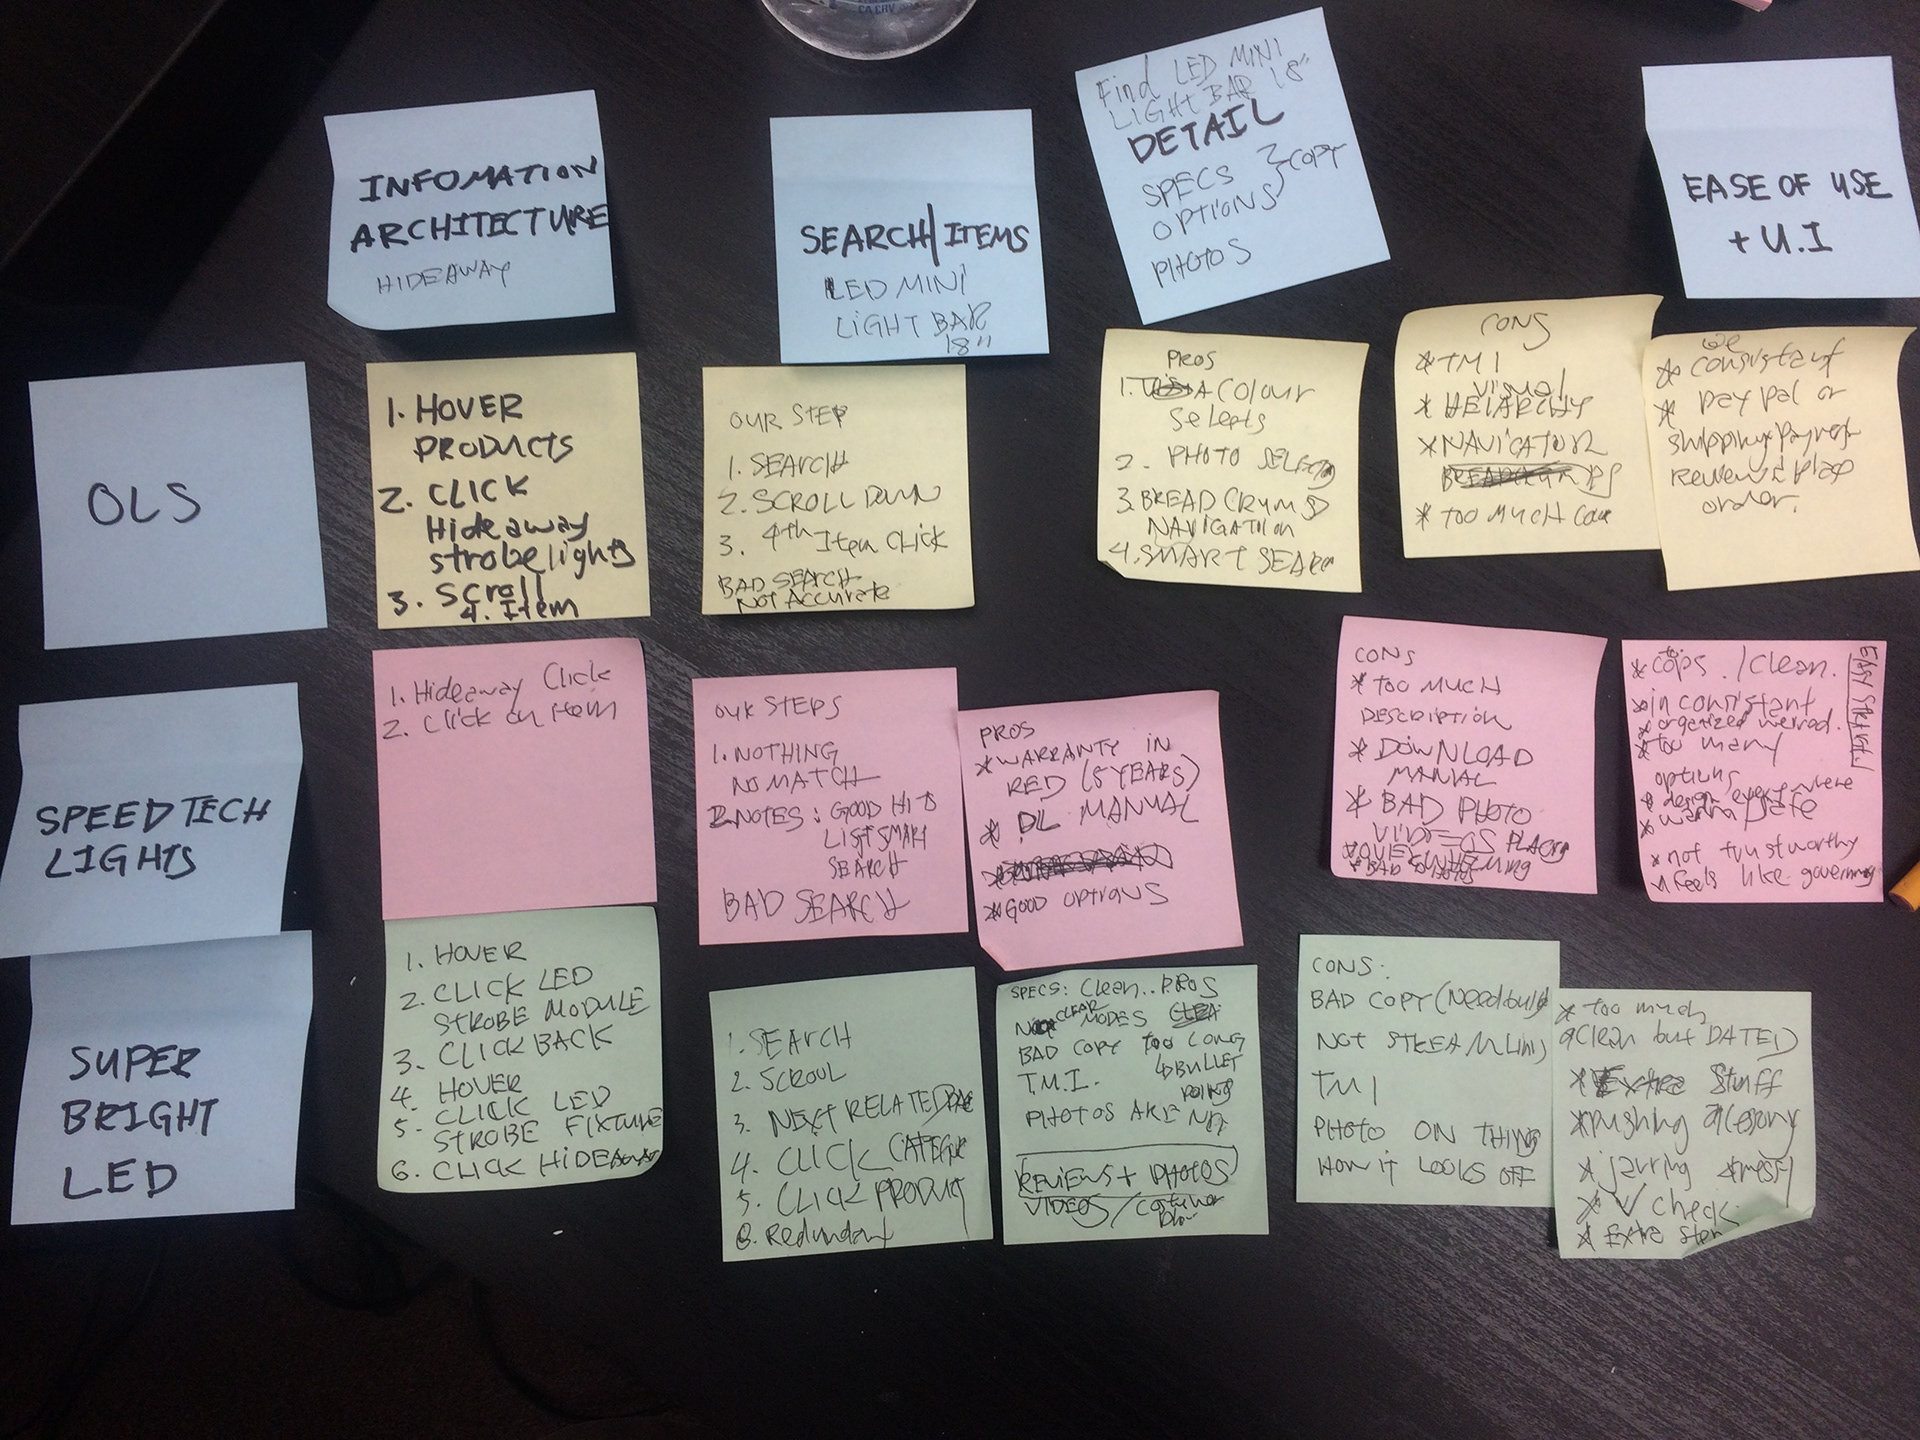 INFOMATION
ARCHITECTURE
HIDEAWAY
SEARCH/ITEMS
LED MINI
LIGHT BAR
18"
Find LED MINI
LIGHT BAR 18"
DETAIL
SPECS
OPTIONS } COPY
PHOTOS
EASE OF USE
+ U.I
OLS
1. HOVER
PRODUCTS
2. CLICK
Hideaway
strobelights
3. Scroll
4. Item
OUR STEP
1. SEARCH
2. SCROLL DOWN
3. 4th Item CLICK
BAD SEARCH
NOT Accurate
PROS
1. A COlour
Selects
2. PHOTO
3. BREAD CRUMB
NAVIGATION
4. SMART SEARCH
CONS
* TMI
VISUAL
* HEIARCHY
* NAVIGATION
* TOO MUCH
* consistant
* paypal or
shipping
review & place
order.
SPEEDTECH
LIGHTS
1. Hideaway Click
2. Click on item
OUR STEPS
1. NOTHING
NO MATCH
2. NOTES: GOOD HITS
LIST SMART
SEARCH
BAD SEARCH
PROS
* WARRANTY IN
RED (5 YEARS)
* DL MANUAL
* GOOD OPTIONS
CONS
* TOO MUCH
DESCRIPTION
* DOWNLOAD
MANUAL
* BAD PHOTO
OVERWHELMING
BAD
* cops. / clean.
* in consistant
* too many
options
* design everywhere
* not trustworthy
* Feels like
SUPER
BRIGHT
LED
1. HOVER
2. CLICK LED
STROBE MODULE
3. CLICK BACK
4. HOVER
5. CLICK LED
STROBE FIXTURE
6. CLICK HIDEAWAY
1. SEARCH
2. SCROLL
3. NEXT RELATED
4. CLICK
5. CLICK PRODUCT
6. Redundant
SPECS: Clean.. PROS
CLEAR MODES
BAD COPY TOO LONG
T.M.I. BULLET
PHOTOS ARE
REVIEWS + PHOTOS
VIDEOS/
CONS:
BAD COPY
NOT
TMI
PHOTO ON THINGS
HOW IT LOOKS OFF
* too much
clean but DATED
* Extra Stuff
* pushing
* jarring * messy
* ✓ check
* Extra step